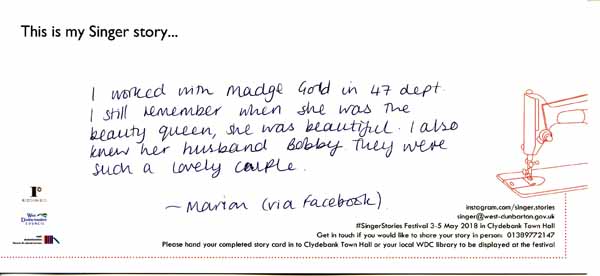 This is my Singer story...
I worked with Madge Gold in 47 dept.
I still remember when she was the
beauty queen, she was beautiful. I also
knew her husband Bobby they were
such a lovely couple.
~ Marian (via Facebook)
instagram.com/singer.stories
singer@west-dunbarton.gov.uk
#SingerStories Festival 3-5 May 2018 in Clydebank Town Hall
Get in touch if you would like to share your story in person: 01389772147
Please hand your completed story card in to Clydebank Town Hall or your local WDC library to be displayed at the festival